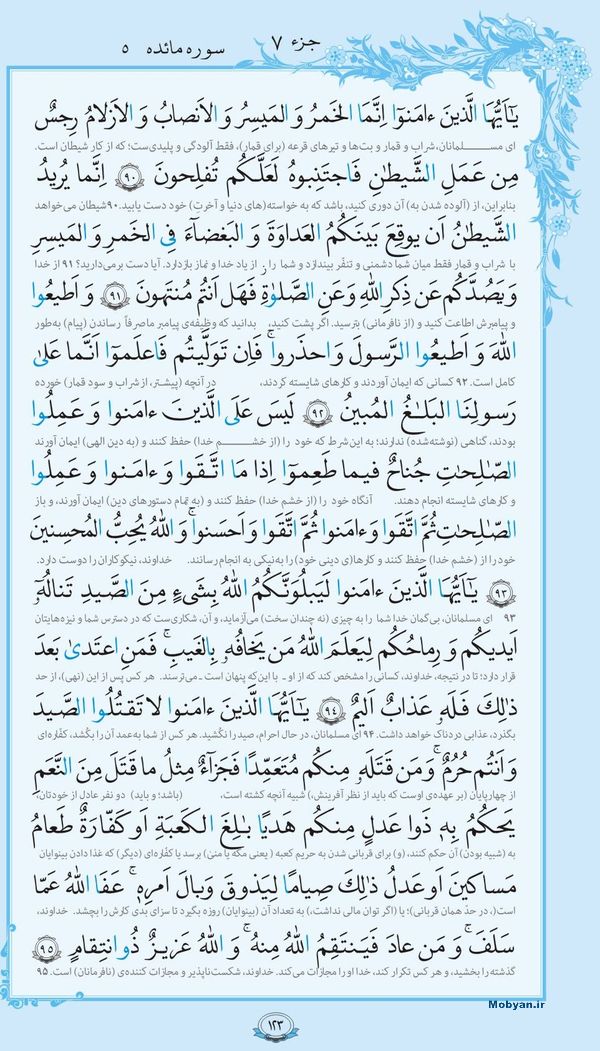 جزء ۷
سوره مائده ۵
يٰٓاَيُّهَا الَّذينَ ءامَنوٓا اِنَّمَا الخَمرُ وَ المَيسِرُ وَ الاَنصابُ وَ الاَزلامُ رِجسٌ
ای مسلمانان، شراب و قمار و بت‌ها و تیرهای قرعه (برای قمار)، فقط آلودگی و پلیدی‌ست؛ که از کار شیطان است.
مِن عَمَلِ الشَّيطٰنِ فَاجتَنِبوهُ لَعَلَّكُم تُفلِحونَ ﴿٩٠﴾ اِنَّما يُريدُ
بنابراین، از (آلوده شدن به) آن دوری کنید، باشد که به خواسته(های دنیا و آخرتِ) خود دست یابید.۹۰شیطان می‌خواهد
الشَّيطٰنُ اَن يوقِعَ بَينَكُمُ العَداوَةَ وَ البَغضآءَ فِى الخَمرِ وَ المَيسِرِ
با شراب و قمار فقط میان شما دشمنی و تنفّر بیندازد و شما را از یاد خدا و نماز بازدارد. آیا دست برمی‌دارید؟ ۹۱ از خدا
وَ يَصُدَّكُم عَن ذِكرِ اللهِ وَ عَنِ الصَّلوٰةِ فَهَل اَنتُم مُنتَهونَ ﴿٩١﴾ وَ اَطيعُوا
و پیامبرش اطاعت کنید و (از نافرمانی) بترسید. اگر پشت کنید، بدانید که وظیفه‌ی پیامبر ما صرفاً رساندن (پیام) به‌طور
اللهَ وَ اَطيعُوا الرَّسولَ وَ احذَروا ۚ فَاِن تَوَلَّيتُم فَاعلَموٓا اَنَّما عَلىٰ
کامل است. ۹۲ کسانی که ایمان آوردند و کارهای شایسته کردند، در آنچه (پیشتر، از شراب و سود قمار) خورده
رَسولِنَا البَلٰغُ المُبينُ ﴿٩٢﴾ لَيسَ عَلَى الَّذينَ ءامَنوا وَ عَمِلُوا
بودند، گناهی (نوشته‌شده) ندارند؛ به این شرط که خود را (از خشم خدا) حفظ کنند و (به دین الهی) ایمان آورند
الصّٰلِحٰتِ جُناحٌ فيما طَعِموٓا اِذا مَا اتَّقَوا وَ ءامَنوا وَ عَمِلُوا
و کارهای شایسته انجام دهند. آنگاه خود را (از خشم خدا) حفظ کنند و (به تمام دستورهای دین) ایمان آورند، و باز
الصّٰلِحٰتِ ثُمَّ اتَّقَوا وَ ءامَنوا ثُمَّ اتَّقَوا وَ اَحسَنوا ۗ وَ اللهُ يُحِبُّ المُحسِنينَ
خود را از (خشم خدا) حفظ کنند و کارها(ی دینی خود) را به‌نیکی به انجام رسانند. خداوند، نیکوکاران را دوست دارد.
﴿٩٣﴾ يٰٓاَيُّهَا الَّذينَ ءامَنوا لَيَبلُوَنَّكُمُ اللهُ بِشَىءٍ مِنَ الصَّيدِ تَنالُهُ
۹۳ ای مسلمانان، بی‌گمان خدا شما را به چیزی (نه چندان سخت) می‌آزماید، و آن، شکاری‌ست که در دسترس شما و نیزه‌هایتان
اَيديكُم وَ رِماحُكُم لِيَعلَمَ اللهُ مَن يَخافُهُ بِالغَيبِ ۚ فَمَنِ اعتَدىٰ بَعدَ
قرار دارد؛ تا در نتیجه، خداوند، کسانی را مشخص کند که از او با این‌که پنهان است می‌ترسند. هر کس پس از این (نهی)، از حد
ذٰلِكَ فَلَهُ عَذابٌ اَليمٌ ﴿٩٤﴾ يٰٓاَيُّهَا الَّذينَ ءامَنوا لا تَقتُلُوا الصَّيدَ
بگذرد، عذابی دردناک خواهد داشت. ۹۴ ای مسلمانان، در حال احرام، صید را نکُشید. هر کس از شما به‌عمد آن را بکُشد، کفّاره‌ای
وَ اَنتُم حُرُمٌ ۚ وَ مَن قَتَلَهُ مِنكُم مُتَعَمِّدًا فَجَزآءٌ مِثلُ ما قَتَلَ مِنَ النَّعَمِ
از چهارپایان (بر عهده‌ی اوست که باید از نظر آفرینش،) شبیه آنچه کشته است، (باشد؛ و باید) دو نفر عادل از خودتان،
يَحكُمُ بِهِ ذَوا عَدلٍ مِنكُم هَديًا بٰلِغَ الكَعبَةِ اَو كَفّارَةٌ طَعامُ
به (شبیه بودنِ) آن حکم کنند، (و) برای قربانی شدن به حریم کعبه (یعنی مکّه یا منیٰ) برسد یا کفّاره‌ای (دیگر) که غذا دادن بینوایان
مَساكينَ اَو عَدلُ ذٰلِكَ صِيامًا لِيَذوقَ وَبالَ اَمرِهِ ۗ عَفَا اللهُ عَمّا
است(، در حدّ همان قربانی)؛ یا (اگر توان مالی نداشت،) به تعداد آن (بینوایان) روزه بگیرد تا سزای بدی کارش را بچشد. خداوند،
سَلَفَ ۚ وَ مَن عادَ فَيَنتَقِمُ اللهُ مِنهُ ۗ وَ اللهُ عَزيزٌ ذُو انتِقامٍ ﴿٩٥﴾
گذشته را بخشید، و هر کس تکرار کند، خدا او را مجازات می‌کند. خداوند، شکست‌ناپذیر و مجازات کننده‌ی (نافرمانان) است. ۹۵
۱۲۳
Mobyan.ir